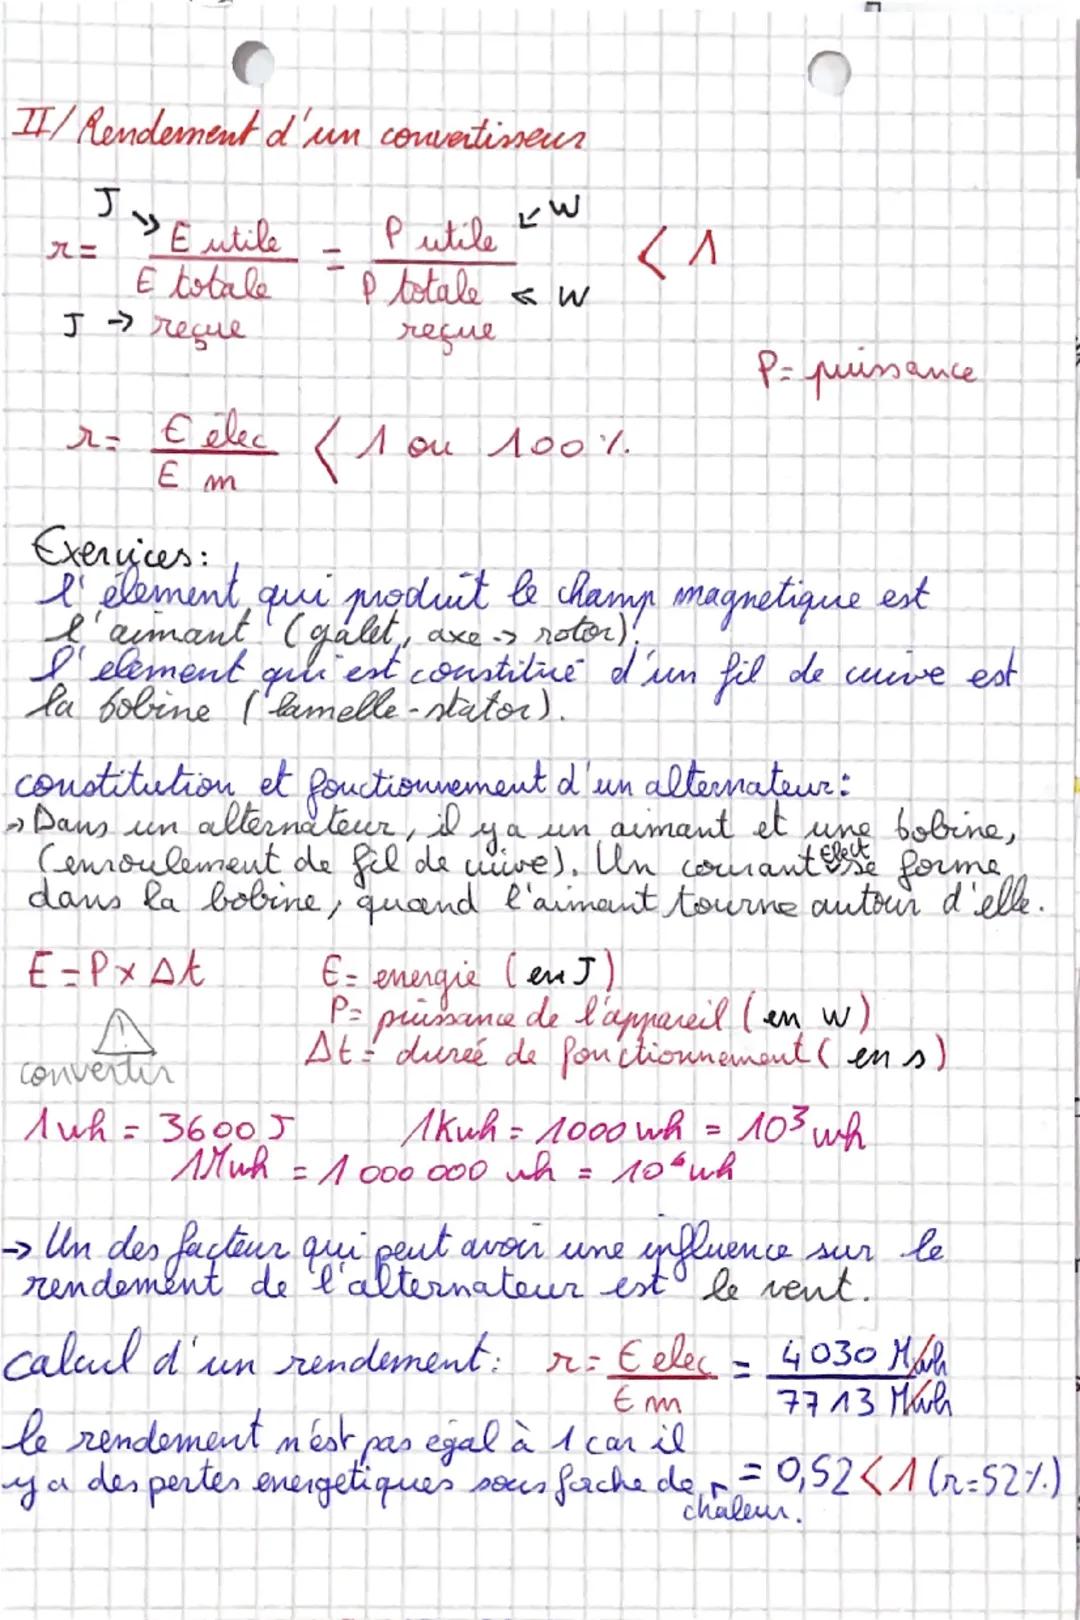 II/ Rendement d'un convertisseur
J → W
r = E utile / E totale reçue = P utile / P totale reçue < 1
J → ← W
P = puissance
r = E élec / E m < 1 ou 100 %.
Exervices :
l'élement qui produit le champ magnetique est
l'aimant (galet, axe → rotor).
l'element qui est constitué d'un fil de cuivre est
la bobine (lamelle - stator).
constitution et fonctionnement d'un alternateur :
→ Dans un alternateur, il y a un aimant et une bobine,
(enroulement de fil de cuivre). Un courant élect se forme
dans la bobine, quand l'aimant tourne autour d'elle.
E = P x Δt E = energie (en J)
P = puissance de l'appareil (en W)
⚠ convertir Δt = dureé de fonctionnement (en s)
1 wh = 3600 J 1 Kwh = 1000 wh = 10³ wh
1 Mwh = 1 000 000 wh = 10⁶ wh
→ Un des facteur qui peut avoir une influence sur le
rendement de l'alternateur est le vent.
calcul d'un rendement : r = E elec / E m = 4030 Mwh / 7713 Mwh
le rendement n'est pas egal à 1 car il
y a des pertes energetiques sous forche de chaleur. = 0,52 < 1 (r = 52 %.)